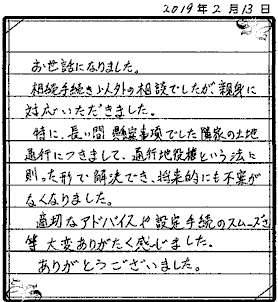 2019年2月13日
お世話になりました。
相続手続き以外の相談でしたが、親身に
対応いただきました。
特に、長い間 懸案事項でした隣家の土地
通行につきまして、通行地役権という法に
則った形で解決でき、将来的にも不安が
なくなりました。
適切なアドバイスや設定手続のスムーズさ
等 大変ありがたく感じました。
ありがとうございました。